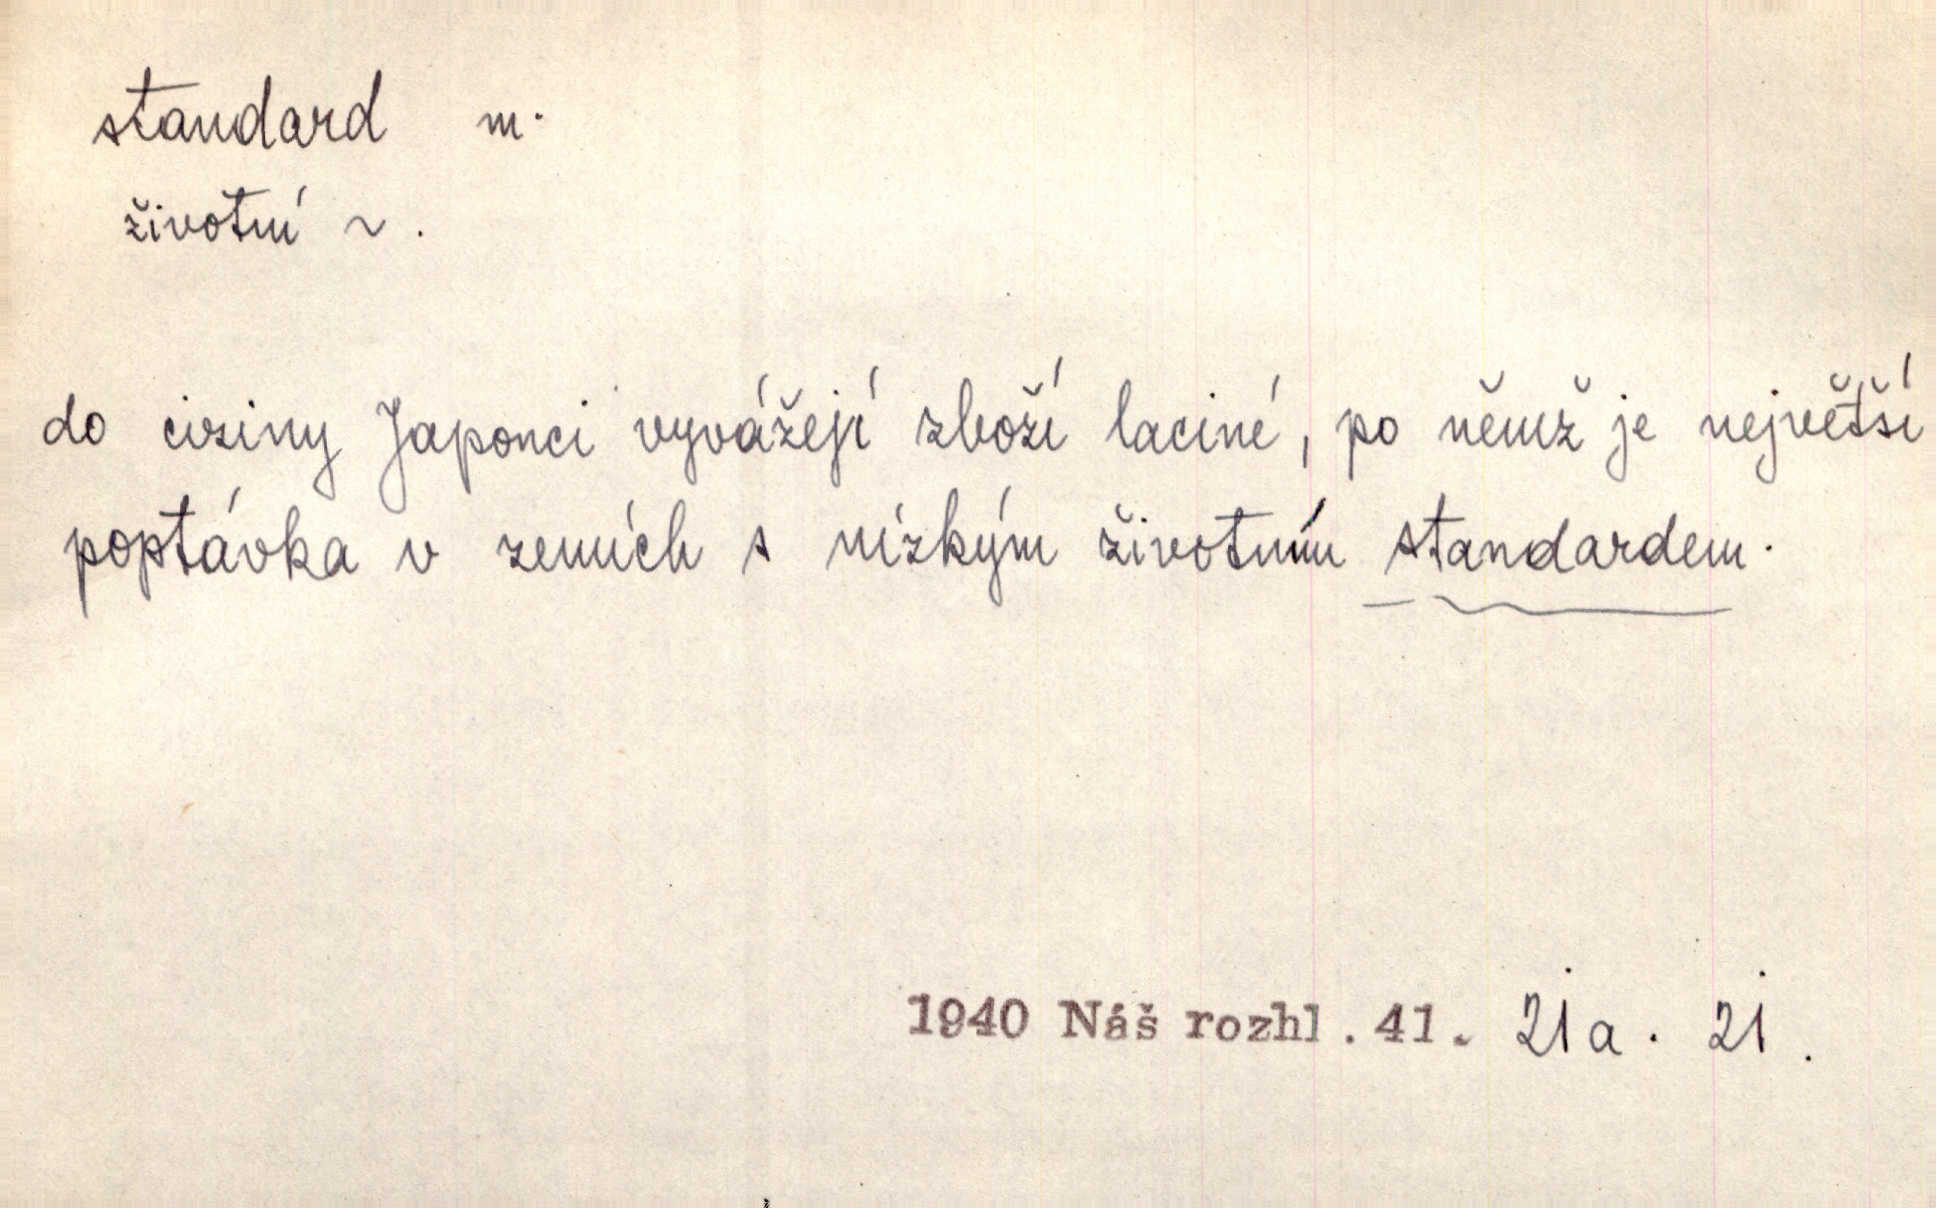 standard m.
životní ~.
do ciziny Japonci vyvážejí zboží laciné, po němž je největší
poptávka v zemích s nízkým životním standardem.
1940 Náš rozhl. 41. 21a. 21.